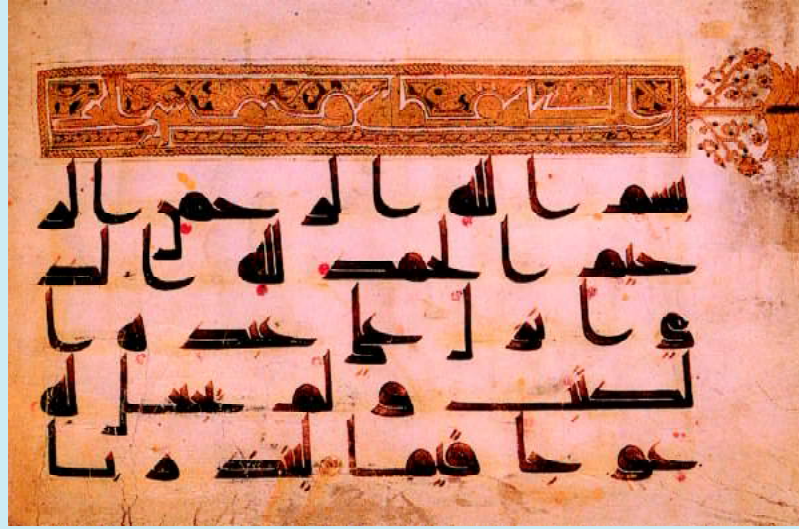 بسم الله الرحمن الر
حيم الحمد لله الذ
ى انزل على عبده ا
لكتب ولم يجعل له
عوجا قيما لينذر با